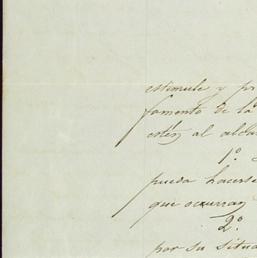 estimule y pr
fomento de la
estén al alca
1º
pueda hacerse
que ocurran
2º
por su situa